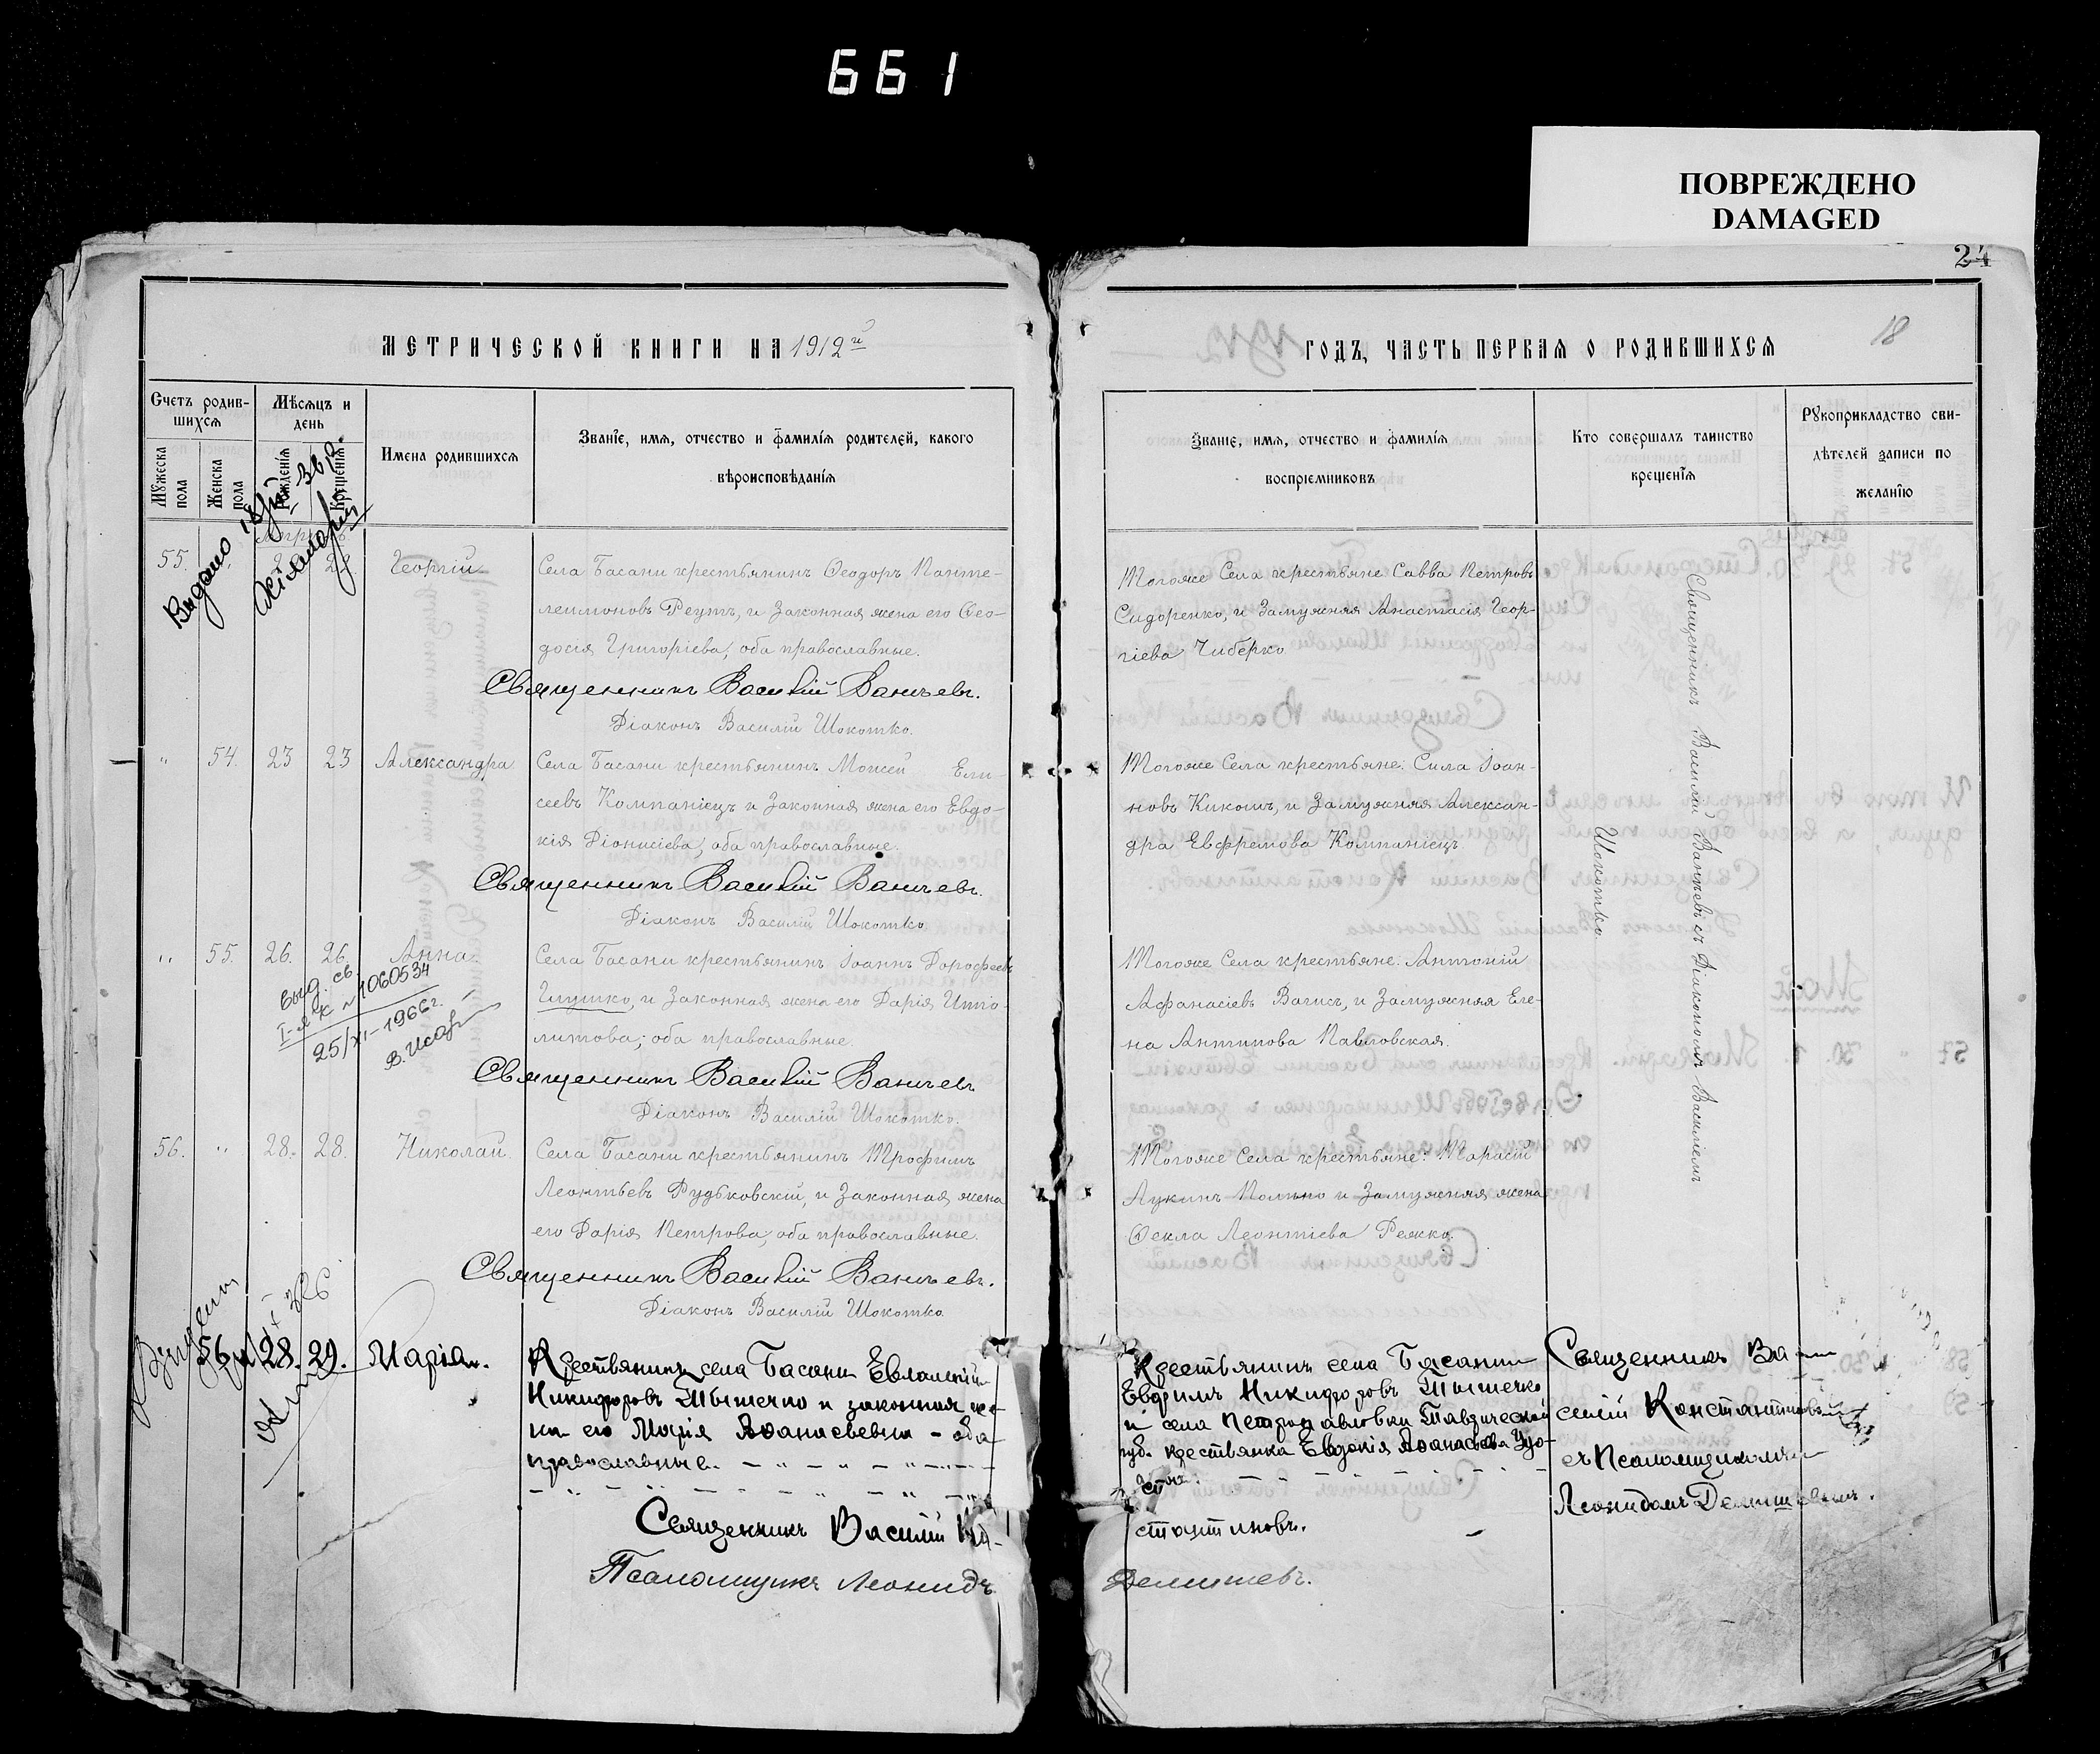 661
ПОВРЕЖДЕНО
DAMAGED
24
18
МЕТРИЧЕСКОЙ КНИГИ НА 1912й
ГОДЪ, ЧАСТЬ ПЕРВАЯ О РОДИВШИХСЯ
Счетъ родив-
шихся
Мужеска
пола
Женска
пола
Мѣсяцъ и
день
Рожденія
Крещенія
Имена родившихся
Званіе, имя, отчество и фамилія родителей, какого
вѣроисповѣданія
Званіе, имя, отчество и фамилія
воспріемниковъ
Кто совершалъ таинство
крещенія
Рукоприкладство сви-
дѣтелей записи по
желанію
Выдано
55.
Георгій
Села Басани крестьянинъ Ѳеодоръ Панте-
леимоновъ Реутъ, и законная жена его Ѳео-
досія Григоріева, оба православные.
Священникъ Василій
Діаконъ Василій Шокотко.
Тогоже Села крестьяне Савва Петровъ
Сидоренко, и замужняя Анастасія Геор-
гіева Чиберко
Священникъ Василій съ Діакономъ Василіемъ
Шокотко.
" 54. 23 23 Александра
Села Басани крестьянинъ Моисей Ели-
сеевъ Компаніецъ и законная жена его Евдо-
кія Діонисіева, оба православные.
Священникъ Василій
Діаконъ Василій Шокотко
Тогоже Села крестьяне: Сила Іоан-
новъ Кикошъ, и замужняя Алексан-
дра Евфремова Компаніецъ.
" 55. 26. 26. Анна
выд. св.
I-я Ж № 1060534
25/XI-1966г.
Села Басани крестьянинъ Іоаннъ Дорофеевъ
Глушко, и законная жена его Дарія Иппо-
литова, оба православные.
Священникъ Василій
Діаконъ Василій Шокотко.
Тогоже Села крестьяне: Антоній
Афанасіевъ Вагисъ, и замужняя Еле-
на Антипова Павловская.
56. " 28. 28. Николай.
Села Басани крестьянинъ Трофимъ
Леонтьевъ Рудьковскій, и законная жена
его Дарія Петрова, оба православные.
Священникъ Василій
Діаконъ Василій Шокотко.
Тогоже Села крестьяне: Тарасій
Лукинъ и замужняя жена
Ѳекла Леонтіева Режко.
56 28. 29. Марія.
Крестьянинъ села Басани Евлампій
Никифоровъ Тышечко и законная же-
на его Марія Аѳанасьевна - оба
православные.
Священникъ Василій Кон-
Псаломщикъ Леонидъ
Крестьянинъ села Басани
Евфимъ Никифоровъ Тышечко
и села Петропавловки Таврической
губ. крестьянка Евдокія Аѳанасьева
стантиновъ.
Демишевъ.
Священникъ Ва-
силій Константиновъ
съ Псаломщикомъ
Леонидомъ Демишевымъ.